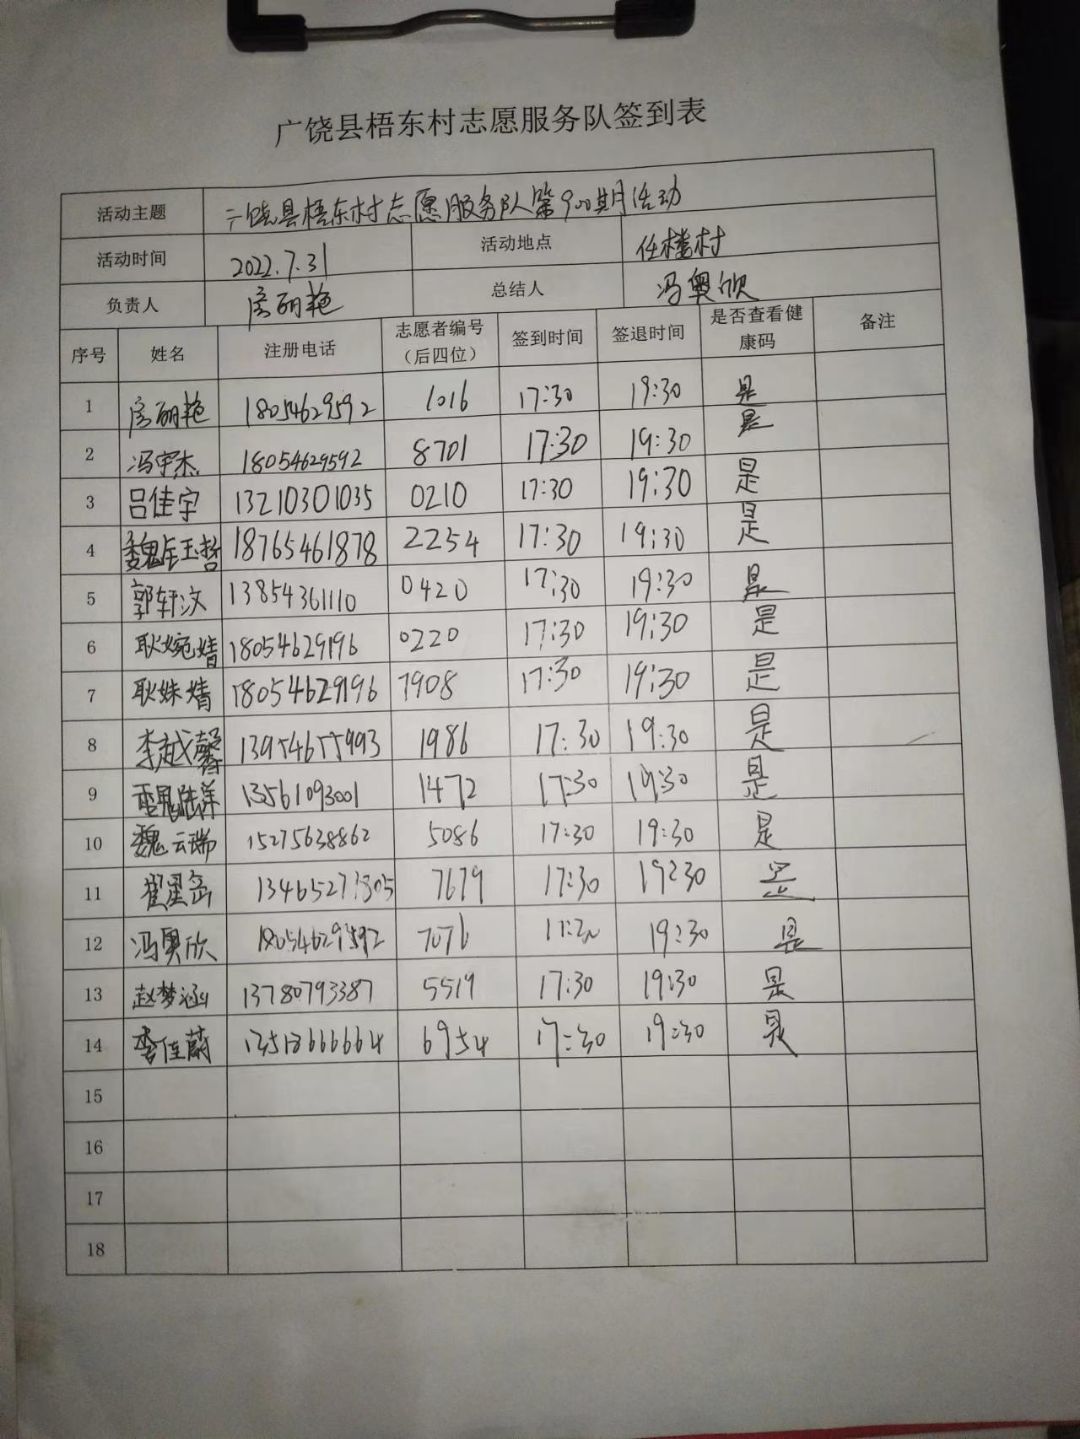 广饶县梧东村志愿服务队签到表
活动主题 广饶县梧东村志愿服务队第900期活动
活动时间 2022.7.31 活动地点 任楼村
负责人 房丽艳 总结人 冯奥欣
序号 姓名 注册电话 志愿者编号（后四位） 签到时间 签退时间 是否查看健康码 备注
1 房丽艳 18054629592 1016 17:30 19:30 是
2 冯宇杰 18054629592 8701 17:30 19:30 是
3 吕佳宇 13210301035 0210 17:30 19:30 是
4 魏钰哲 18765461878 2254 17:30 19:30 是
5 郭轩汶 13854361110 0420 17:30 19:30 是
6 耿婉婧 18054629196 0220 17:30 19:30 是
7 耿姝婧 18054629196 7908 17:30 19:30 是
8 李越馨 13954655993 1986 17:30 19:30 是
9 13561093001 1472 17:30 19:30 是
10 魏云瑞 15275638862 5086 17:30 19:30 是
11 7679 17:30 19:30 是
12 冯奥欣 18054629592 7076 17:30 19:30 是
13 赵梦涵 13780793387 5519 17:30 19:30 是
14 李佳蔚 13518666664 6954 17:30 19:30 是
15
16
17
18